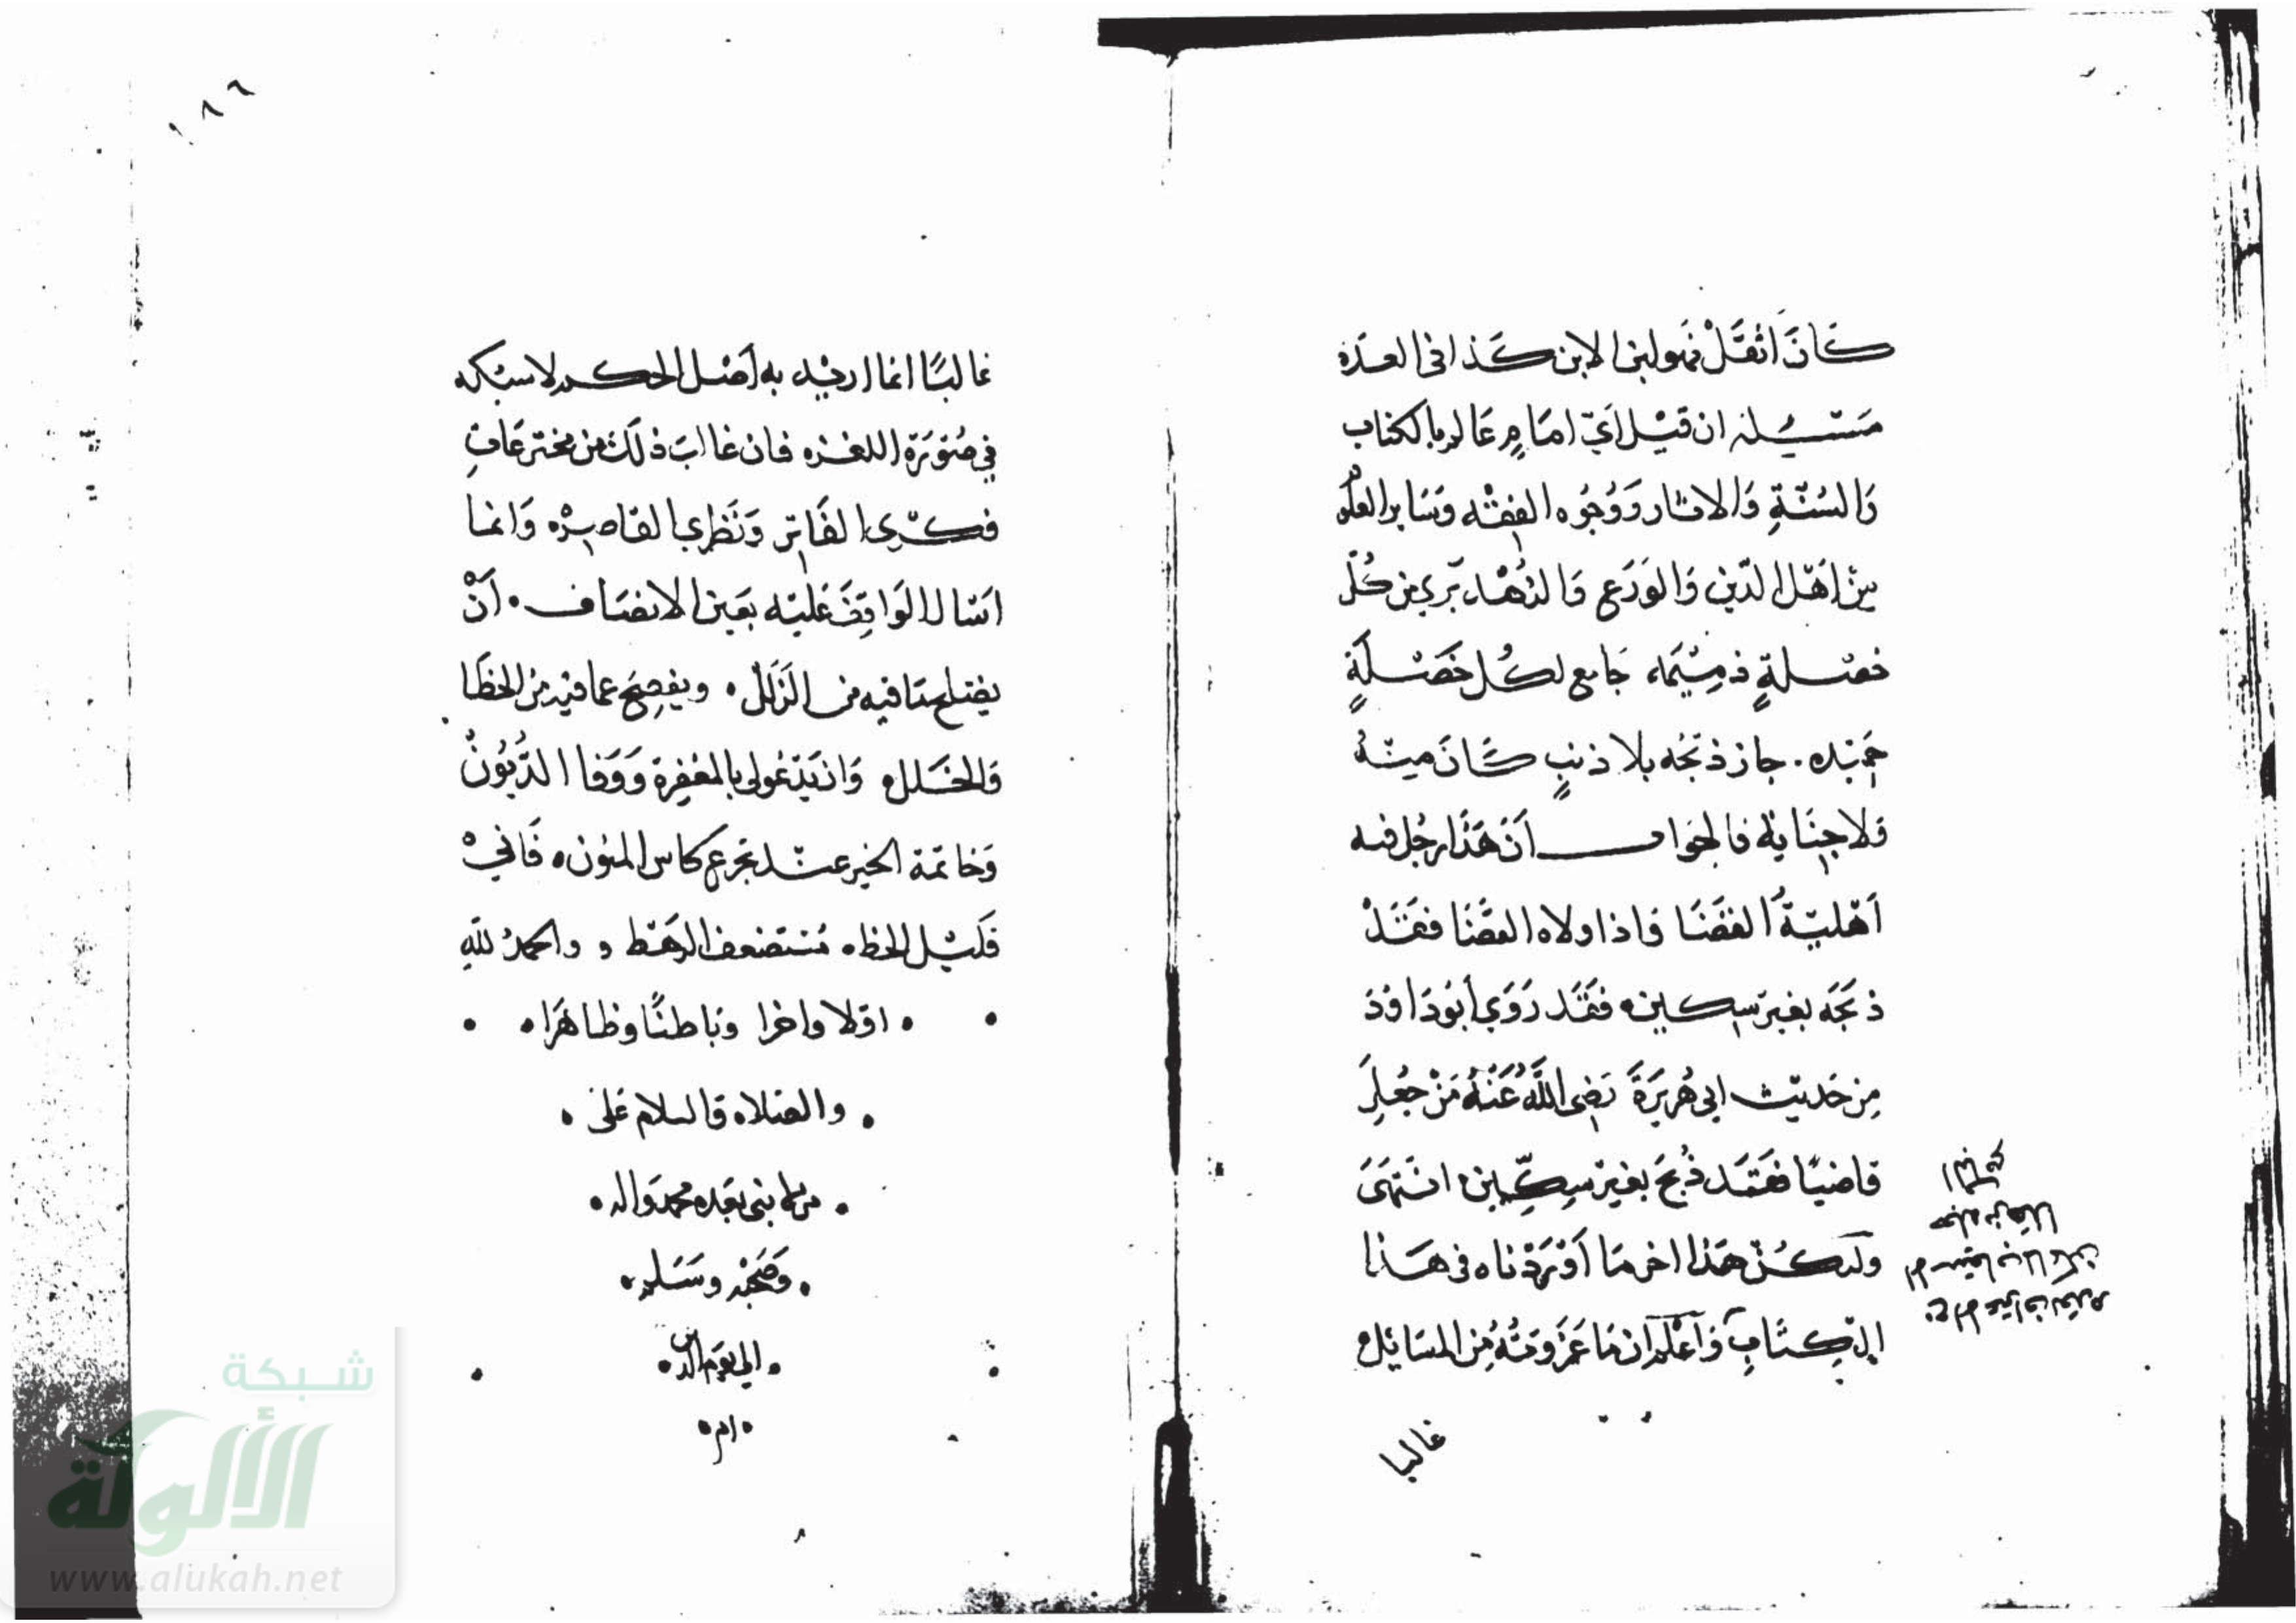 كَانَ اثقَلْ فهو لبن الابن كَذا في العدَة
مَسْئلة ان قيْل ايّ امَامٍ عَالم بالكتاب
وَالسُنّةِ وَالاثار وَوُجُوه الفِقْه وَسَاير العلوم
مِنْ اَهْل الدّين وَالوَرَع وَالزُهْد بَريء من كُلّ
خصْلةٍ ذمِيْمَة جَامع لكُل خَصْلَةٍ
حميْده . جاز ذبْحُه بلا ذنبٍ كَانَ مِنْهُ
وَلا جِنَايهْ فالجوابُ اَنَ هَذَا رجُل فيه
اَهْليّةُ القَضَا فاذا ولاه القضَا فقَدْ
ذبَحَه بغير سِكين فقَد رَوَي اَبُو دَاوُدَ
مِن حَديْث ابي هُريرَةَ رَضِى اللَّهُ عَنْهُ مَنْ جُعِلَ
قاضيًا فقَد ذُبحَ بغيْر سِكِّين انتَهىَ
وَليَكُنْ هَذا اخر مَا اَوْرَدْناه في هَذا
الكِتَابِ وَاعْلم ان مَا عَزَوتُهُ مِن المسَايل
غالبا
١٨٦
غالبًا انما اريْد به اَصْل الحكم لا سبْكه
في صُوْرَة اللغزه فان غالبَ ذلَك من مخترعَاتِ
فكْرِي الفَاتِر وَنَظَرِي القاصِرْه وَانما
اسَال الوَاقِفَ عَليْه بعَين الانصَاف . اَنْ
يصْلح مَا فيه من الزَلَل . ويفصِحَ عما فيْه من الخطَا
وَالخَلل وَان يَدْعُو لي بالمغفِرة وَوَفا الدُّيُوْنْ
وَخاتمة الخير عنْد تجرع كاس المنون . فَانيْ
قَليْل الحظ . مُسْتضعف الرهْط . والحمدُ للّهِ
. اوّلا واخرا وَبَاطنًا وظاهَرا .
. والصَلاه وَالسلام عَلى .
. من لا نبي بَعْده محمد وَاله .
. وَصَحبْه وسَلم .
. الي يَوْم الدين .
. ام .
شبكة
الألوكة
www.alukah.net